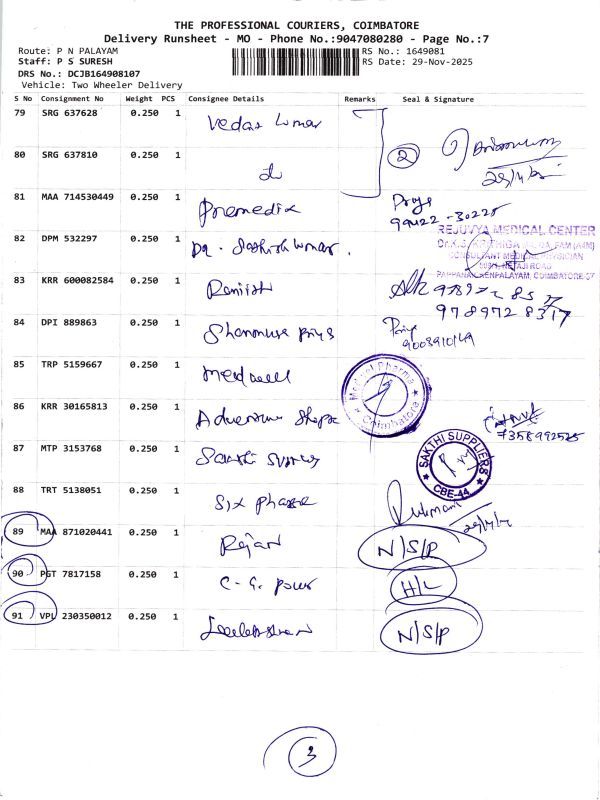 THE PROFESSIONAL COURIERS, COIMBATORE
Delivery Runsheet - MO - Phone No.:9047080280 - Page No.:7
Route: P N PALAYAM
RS No.: 1649081
Staff: P S SURESH
RS Date: 29-Nov-2025
DRS No.: DCJB164908107
Vehicle: Two Wheeler Delivery
S No Consignment No Weight PCS Consignee Details Remarks Seal & Signature
79 SRG 637628 0.250 1
80 SRG 637810 0.250 1 2
81 MAA 714530449 0.250 1 Premedix Priya
99422-30225
REJUVYA MEDICAL CENTER
82 DPM 532297 0.250 1 Dr. Sathish kumar.
CONSULTANT MEDICAL PHYSICIAN
PAPPANAICKENPALAYAM, COIMBATORE-37
83 KRR 600082584 0.250 1
978972 8317
84 DPI 889863 0.250 1 Priya
85 TRP 5159667 0.250 1 Medwell
Medwell Pharma
Coimbatore
86 KRR 30165813 0.250 1 Adventure Shope
7358992525
87 MTP 3153768 0.250 1
SAKTHI SUPPLIERS
CBE-44
88 TRT 5138051 0.250 1 Six phase Rukmani
89 MAA 871020441 0.250 1 Rajan N/S/P
90 PGT 7817158 0.250 1 C.G. power H/L
91 VPL 230350012 0.250 1 N/S/P
3